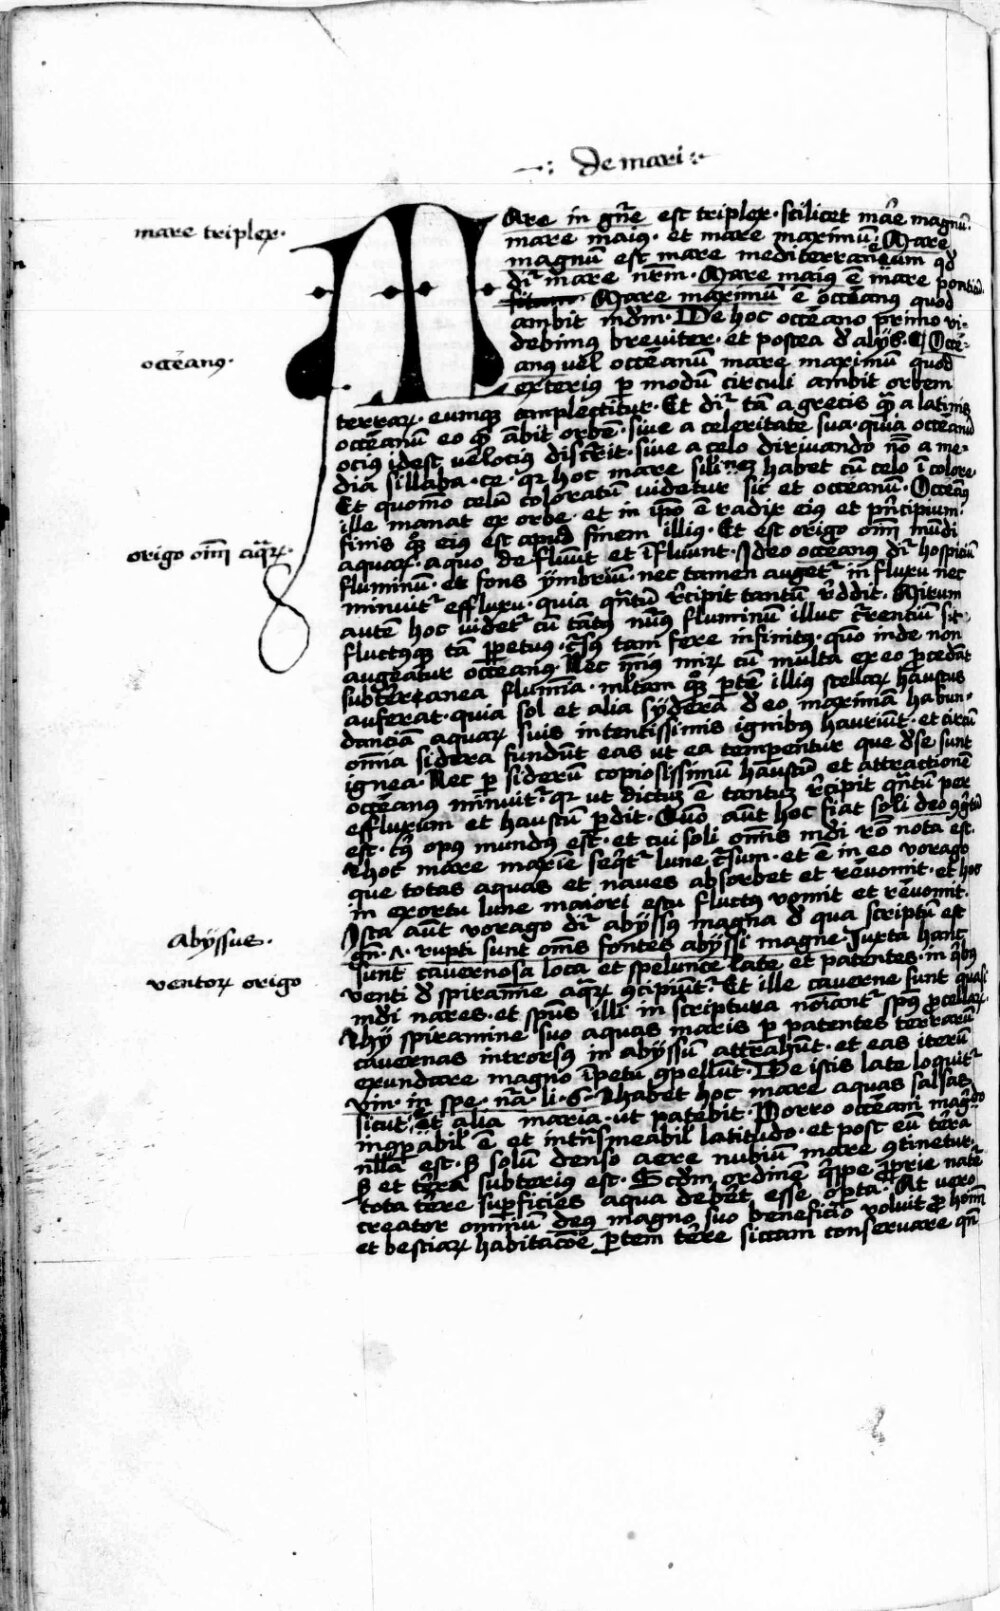 De mari
mare triplex
Mare in gn̄e est triplex. scilicet mar̄e magnū.
mare maius. et mare maximū. Mare
magnū est mare mediterraneum qd̄
dr̄ mare nrm̄. Mare maius ē mare ponticū.
Mare maximū ē occeanus quod
ambit mdm̄. De hoc occeano primo vi-
debimus breviter. et postea d̄ alijs. Occe-
occeanus
anus vel occeanum mare maximū quod
exterius p modū circuli ambit orbem
terrarꝝ. eumqꝫ complectitur. Et dr̄ tā a grecis qᷓ a latinis
occeanū eo qᷓ ābit orbē. sive a celeritate sua. quia occeanū
ocius idest velocius discrit. sive a celo dirivando nō a me-
dia sillaba. ce. qr hoc mare habet cū celo ī colore
Et quomō celū coloratū videtur sic et occeanū. Occeanꝰ
ille manat ex orbe. et in ip̄o ē radix eius et pn̄cipium.
finis qꝫ eius est apud finem illius. Et est origo om̄i mūdi
origo om̄i aqᷓrꝝ.
aquarꝝ. a quo de fluūt et īfluunt. Ideo occeanus dr̄ hospiciū
fluminū. et fons ymbriū. nec tamen augetʳ in fluxu nec
minuitʳ effluxu. quia qn̄tū rc̄ipit tantū rd̄dit. Mirum
autē hoc videtʳ cū tātꝰ nūꝰ fluminū illuc c̄rentiū sit.
fluctꝰqꝫ tā ꝑpetuus. c̄sus tam fere infinitꝰ. quō inde non
augeatur occeanus. Nec minꝰ mirꝝ cū multa ex eo ꝓcedāt
subterranea flumīa. ml̄tam qꝫ ꝑtē illius stellarꝝ haustus
auferat. quia sol et alia sydera d̄ eo maximā habun-
danciā aquarꝝ suis intentissimis ignibus hauriūt. et circū
om̄ia sidera fundūt eas ut ea temperentur que d̄ se sunt
ignea. Nec ꝑ siderū copiosissimū haustū et attractionē
occeanus minuitʳ. qr ut dictū ē tantū rc̄ipit qn̄tū per
effluxum et haustū ꝑdit. Quō aūt hoc fiat soli deo
est. cuius opus mundus est. et cui soli om̄is mdi rō nota est.
hoc mare maxīe seqᷓtʳ lune c̄sum. et ē in eo vorago
que totas aquas et naves absorbet et revomit. et hoc
in exortu lune maiori estu fluctus vomit et revomit.
Ista aūt vorago dr̄ abyssus magna d̄ qua scriptū est
Abyssus.
gn̄. rupti sunt om̄s fontes abyssi magne. Juxta hanc
sunt cavernosa loca et spelunce late et patentes. in qᷓbus
ventorꝝ origo
venti d̄ spiramīe aqᷓrꝝ ꝯcipiūtʳ. Et ille caverne sunt quasi
mdi nares. et spūs illi in scriptura noīantʳ spūs ꝓcellarꝝ.
hij spiramine suo aquas maris ꝑ patentes terrarū
cavernas introrsus in abyssū attrahūt. et eas iterū
exundare magno īpetu ꝯpellūt. De istis late loquitʳ
vin. in spe. nā. li. 6. habet hoc mare aquas salsas
sicut et alia maria. ut patebit. Porro occeani
inꝯꝑabil ē et intn̄smeabil latitudo. et post eū terra
nlla est. sꝫ solū denso aere nubiū mare ꝯtinetur.
sꝫ et terra subterius est. Scdm̄ ordinē qᷓppe ꝓprie nat̄e
tota tere suꝑficies aqua deberet esse oꝑta. At vero
creator omniū deus magno suo beneficio voluit ꝓ hoīm
et bestiarꝝ habitacōe ꝑtem tere siccam conservare qn̄